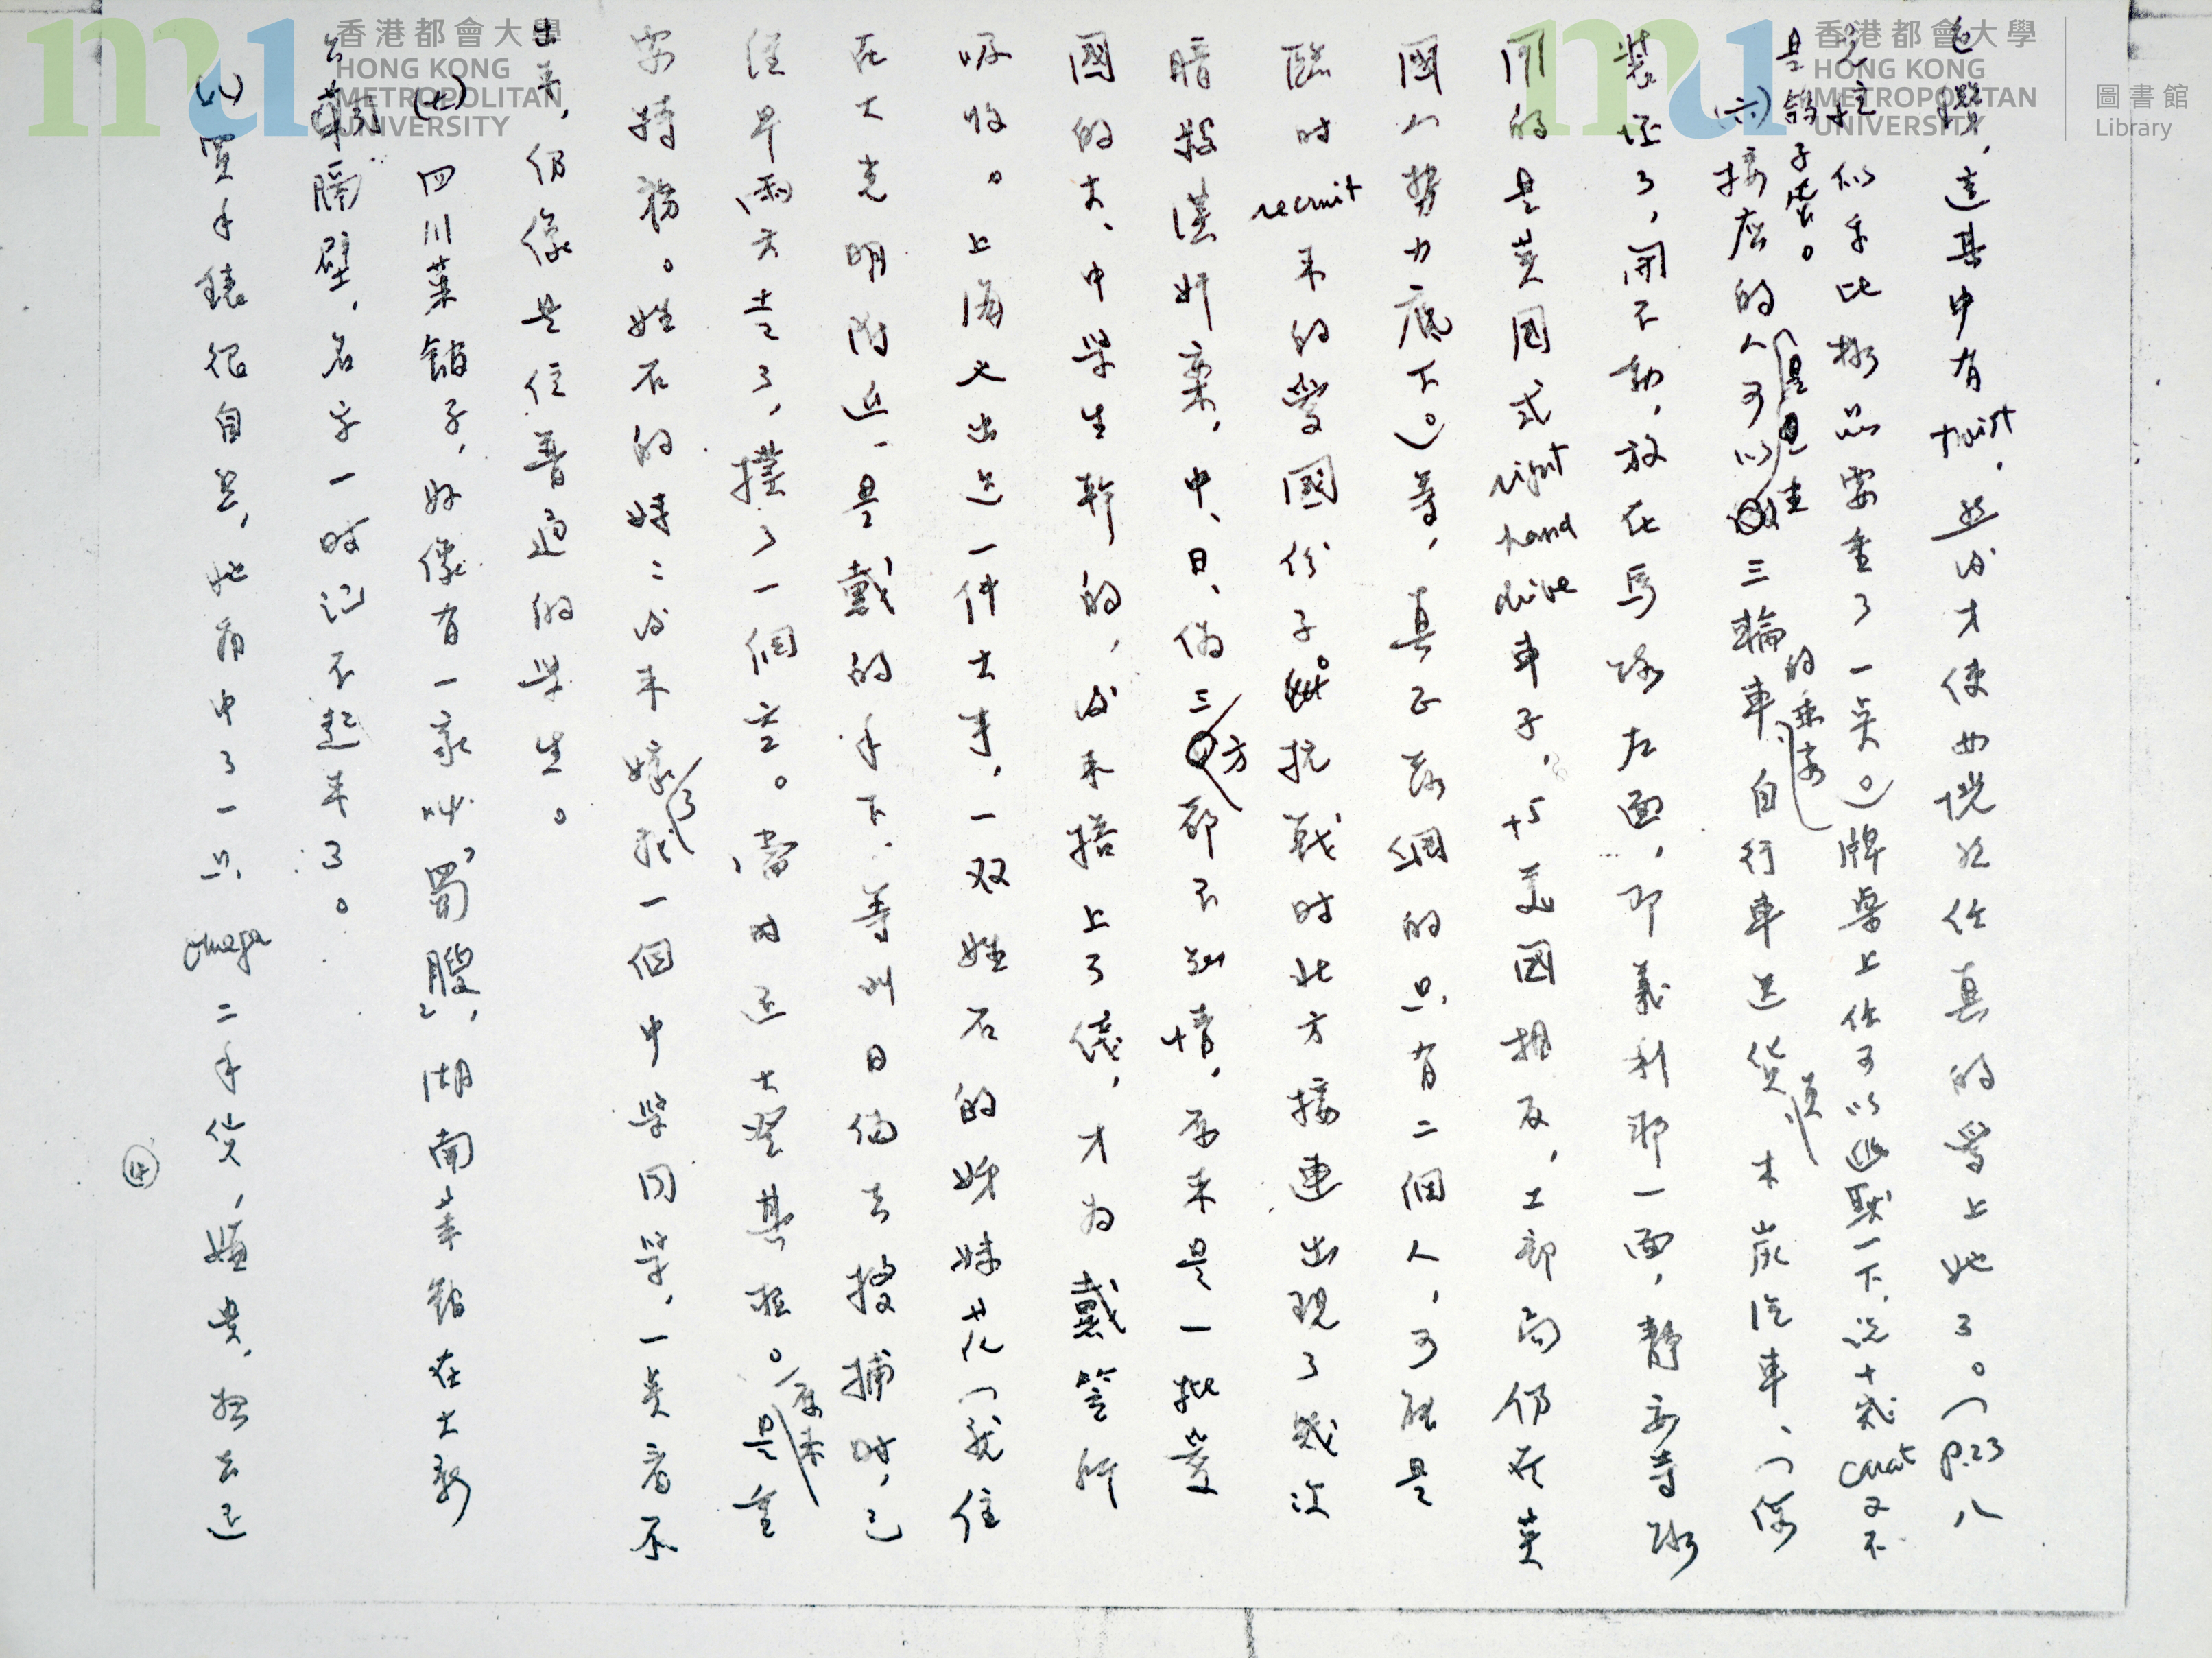 香港都會大學
HONG KONG
METROPOLITAN
UNIVERSITY
香港都會大學
HONG KONG
METROPOLITAN
UNIVERSITY
圖書館
Library
,這其中有 twist,然後才使她恍然他真的愛上她了。(P.23 八
克拉似乎比擬品要重了一点。)牌桌上他可以幽默一下,說十幾 carat 又不
是鴿子蛋。
(六)接應的人可以是三輪車的乘客、自行車送貨員、木炭汽車、(偽
裝壞了,開不動,放在馬路左面,即義利那一面,靜安寺路
用的是英國式 right hand drive 車子,与美國相反,工部局仍在英
國人勢力底下。)等,真正落網的只有二個人,可能是
臨時 recruit 來的愛國份子。抗戰時北方接連出現了幾次
暗殺漢奸案,中、日、偽三方都不知情,原來是一批愛
國的大、中學生幹的,後來搭上了綫,才為戴笠所
吸收。上海也出过一件大事,一双姓石的姊妹花(我住
在大光明附近),是戴的手下,等到日偽去搜捕時,已
經早兩天走了,撲了一個空。當時还大。原來是重
特務。姓石的妹妹後來嫁了我一個中學同學,一点看不
出來,仍像是位普通的學生。
(七)四川菜館子,好像有一家叫「蜀腴」,湖南菜館在大新
公司隔壁,名字一時記不起來了。
(八)買手錶很自然,她看中了一只 Omega 二手貨,嫌貴,想去还
④